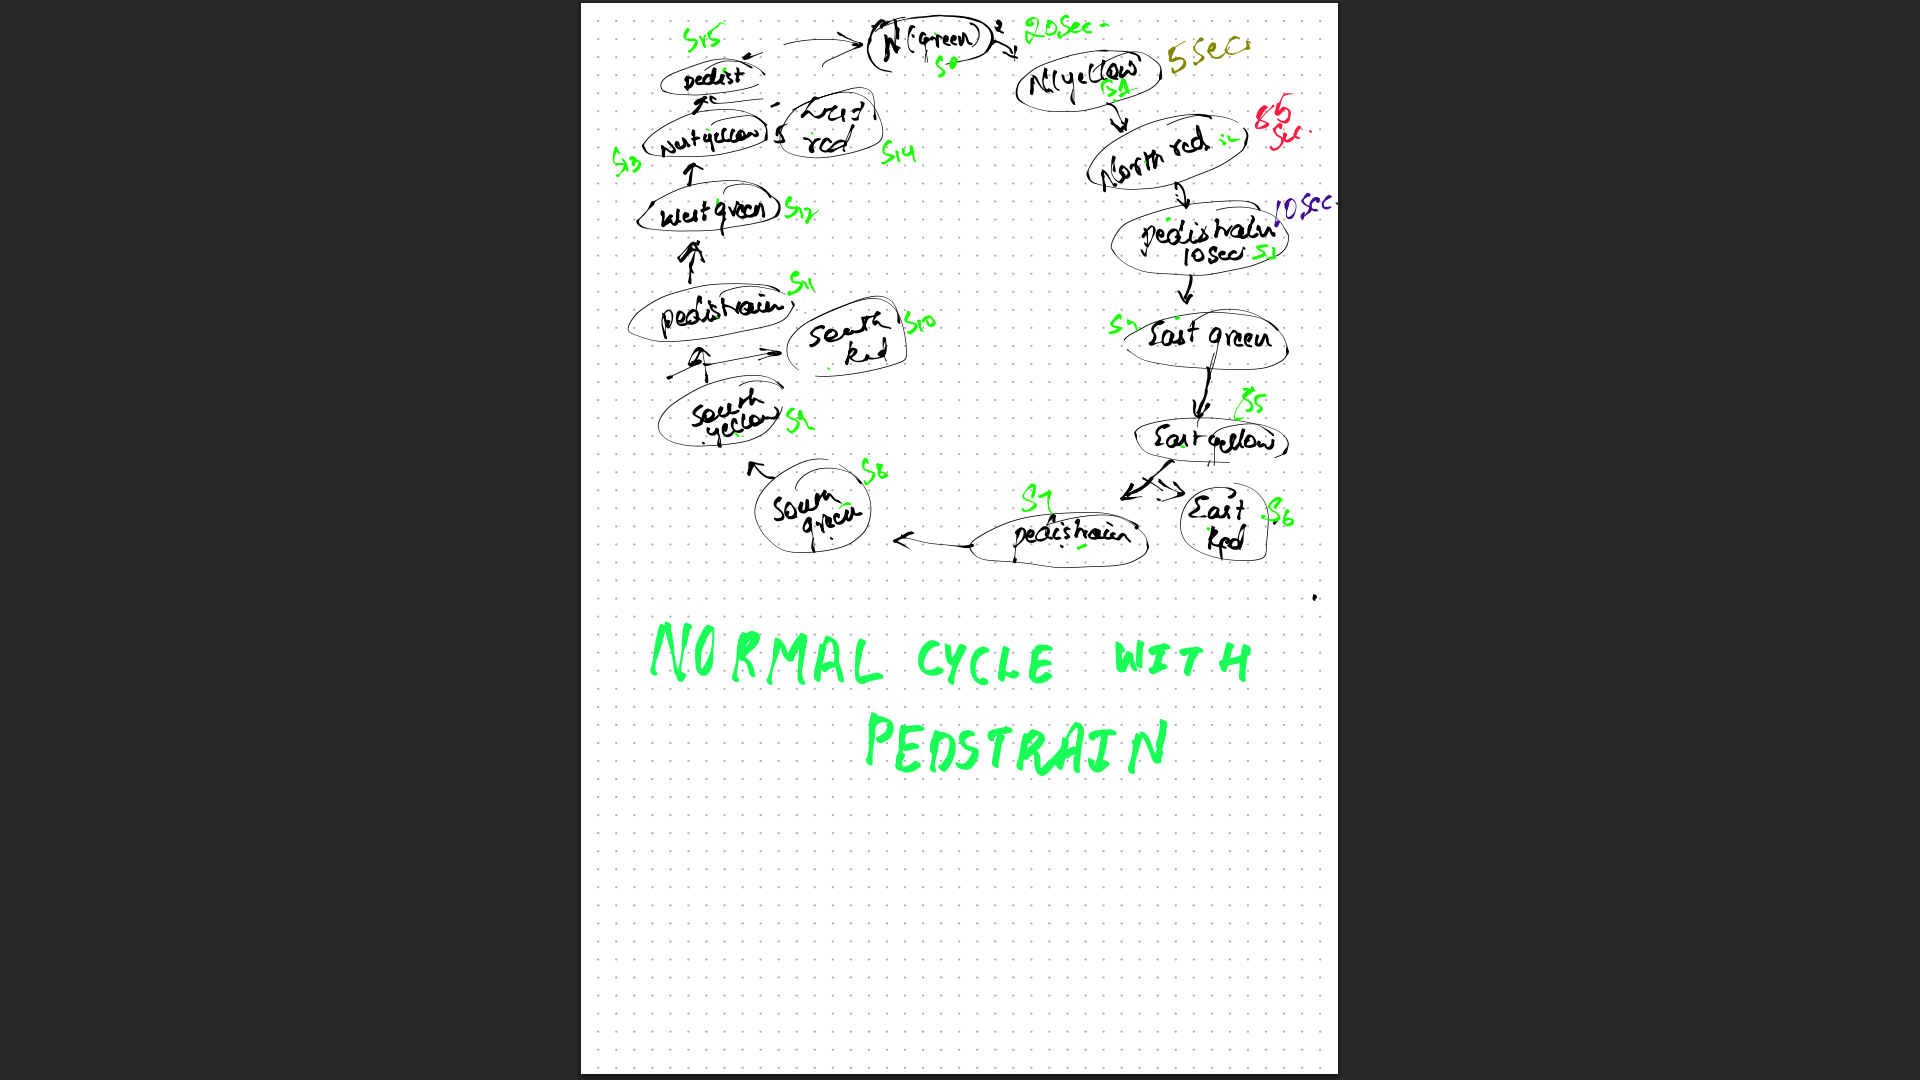 N (green)
S0
20Sec
N(yellow
S1
5 Sec
North red
85
Sec
pedistrain
10Sec S3
10Sec
East green
East yellow
S5
East
Red
S6
S7
pedistrain
South
green
S8
South
yellow
S9
South
Red
S10
pedistrain
S11
West green
S12
West yellow
S13
West
red
S14
pedist
S15
NORMAL CYCLE WITH
PEDSTRAIN